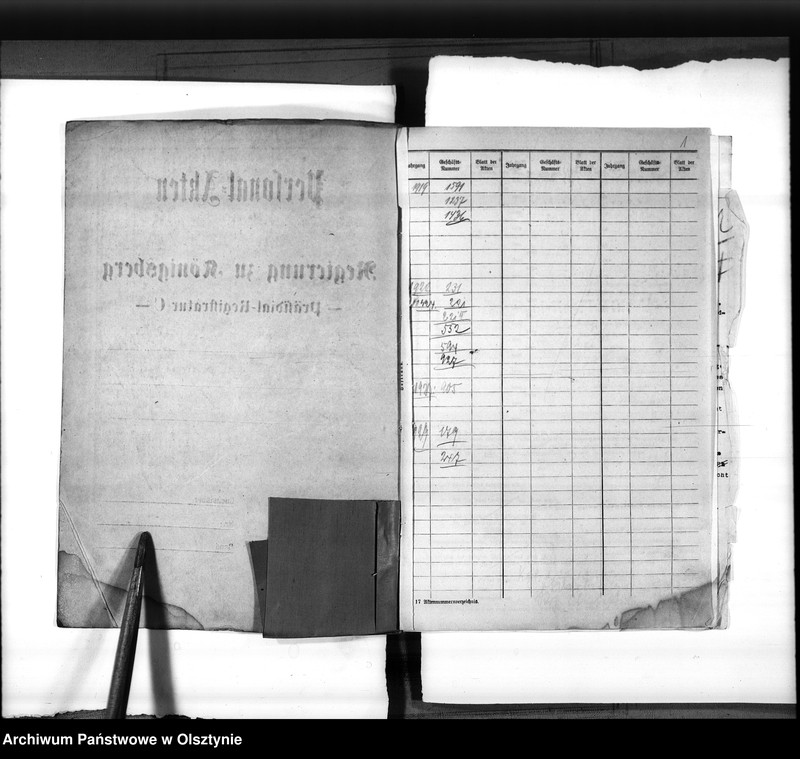 Personal-Akten
Regierung zu Königsberg
— Präsidial-Registratur C —
1
Jahrgang Geschäfts-Nummer Blatt der Akten Jahrgang Geschäfts-Nummer Blatt der Akten Jahrgang Geschäfts-Nummer Blatt der Akten
1919 1591
1237
1436
231
201
532
594
927
905
179
247
17 Aktennummernverzeichnis.
Archiwum Państwowe w Olsztynie